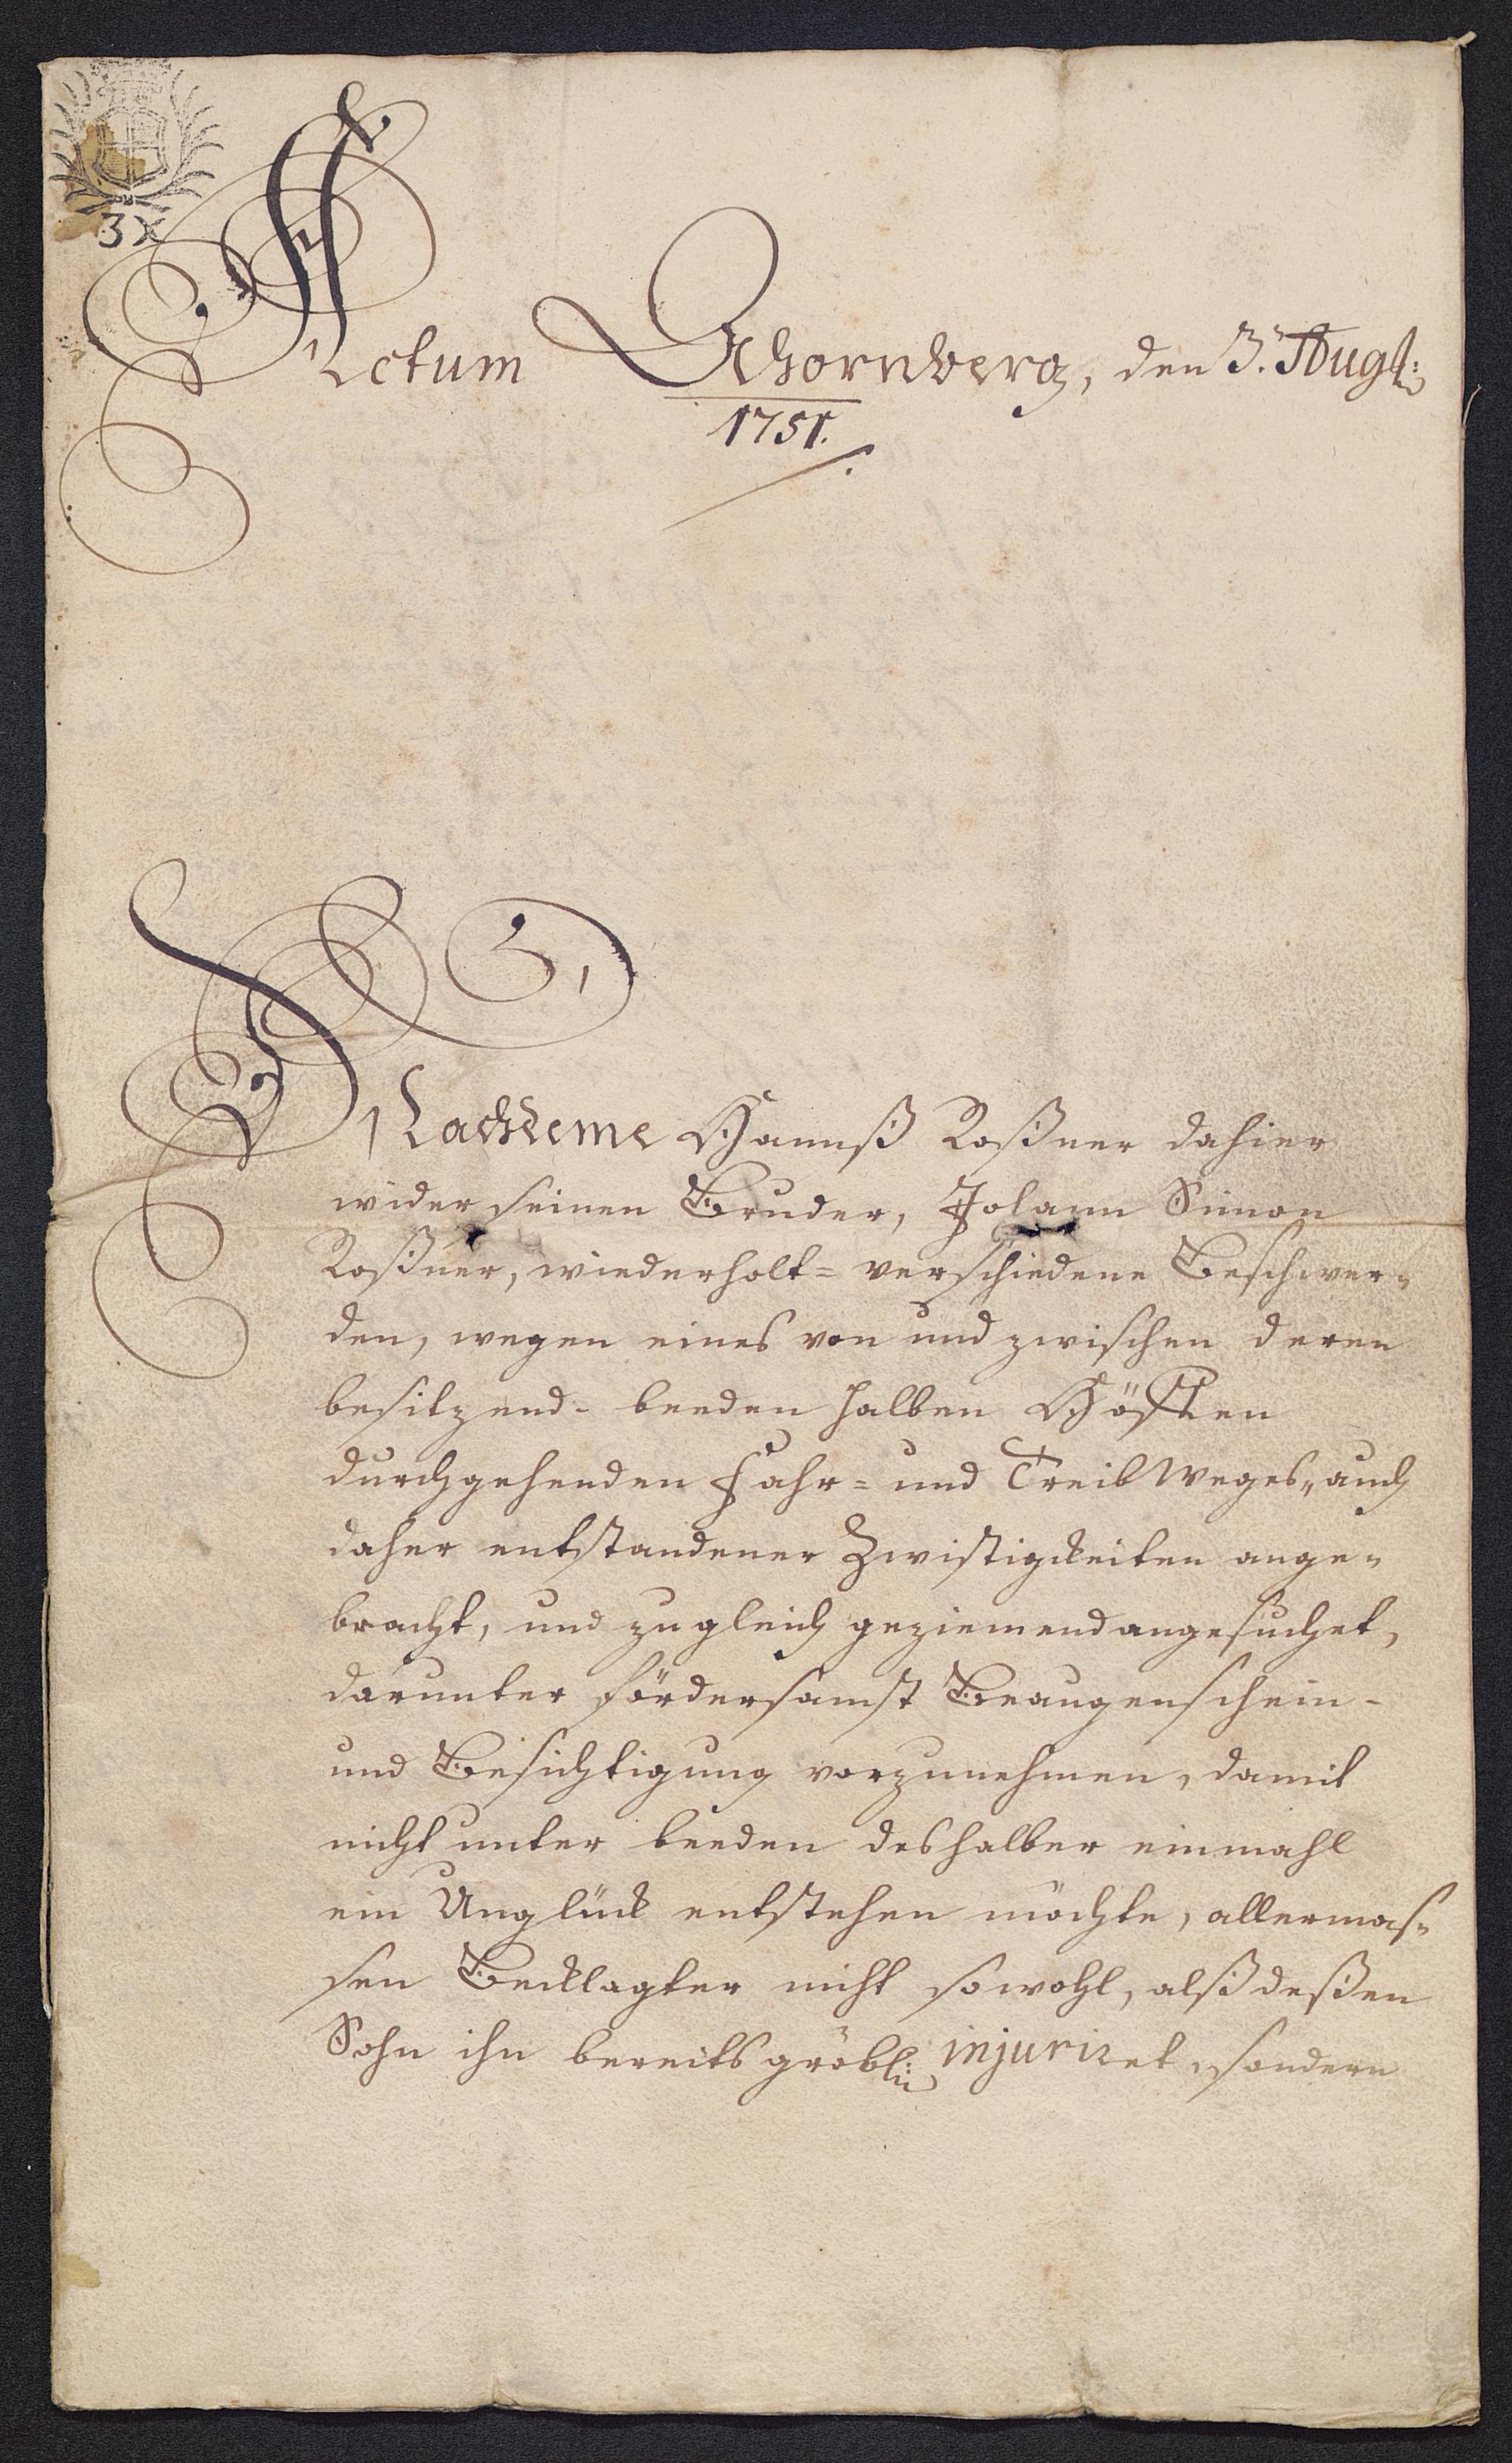 3 x
Actum Thornberg, den 3. Aug͞t:
1751.
Nachdeme Hannß Roßner dahier
wider seinen Bruder, Johann Simon
Roßner, wiederholt= verschiedene Beschwer=
den, wegen eines von und zwischen deren
besitzend- beeden halben Höften
durchgehenden Fahr= und Treib Weges, auch
daher entstandener Zwistigkeiten ange=
bracht, und zugleich geziemend angesuchet,
darunter fördersamst Beaugenschein-
und Besichtigung vorzunehmen, damit
nicht unter beeden deshalber einmahl
ein Unglück entstehen möchte, allermas=
sen Becklagter nicht sowohl, alß deßen
Sohn ihn bereits gröbl: injuriret, sondern